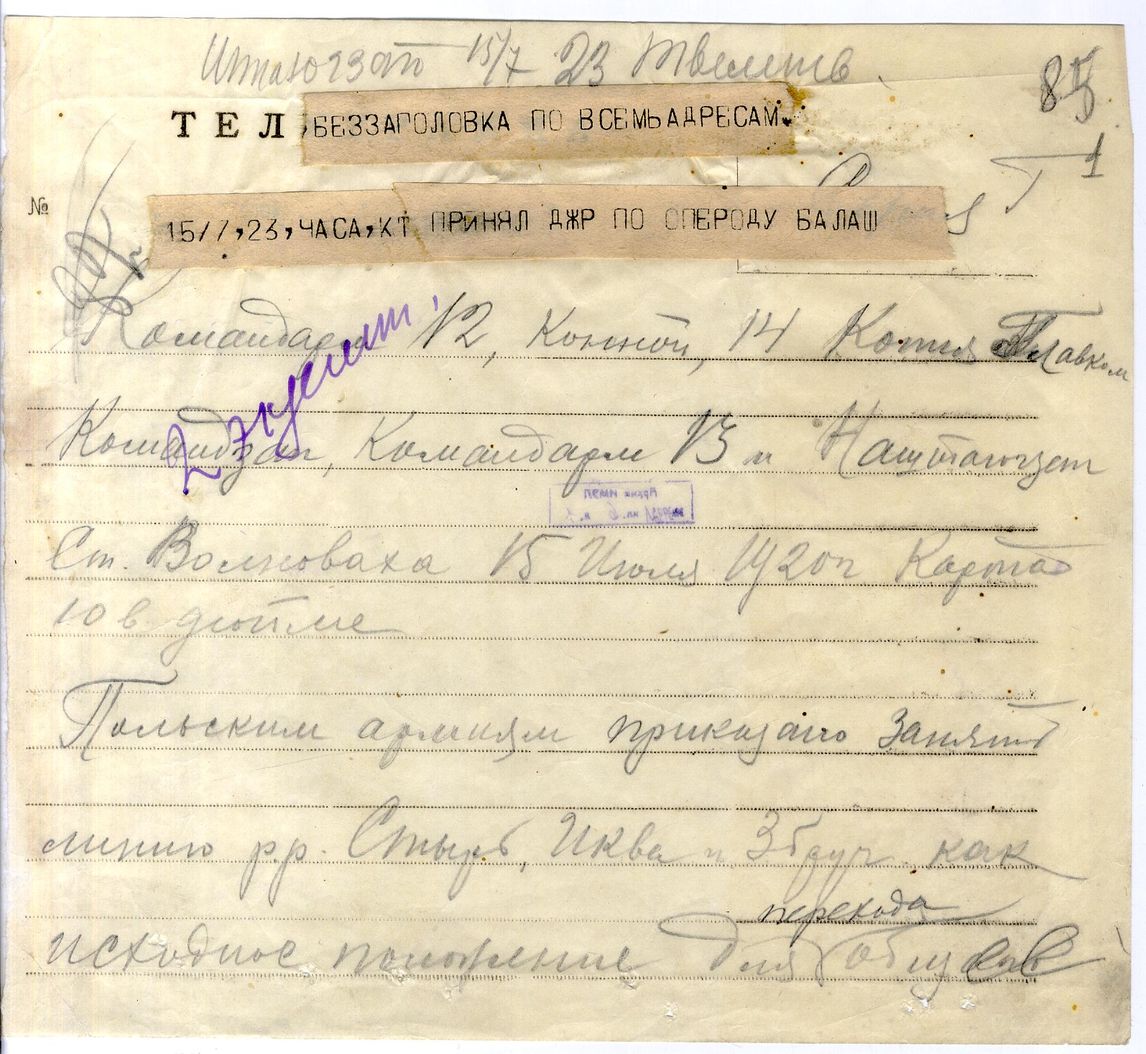 15/7 23
85
ТЕЛ БЕЗЗАГОЛОВКА ПО ВСЕМЬАДРЕСАМ.
1
№
15/7,23,ЧАСА,КТ ПРИНЯЛ ДЖР ПО ОПЕРОДУ БАЛАШ
Командарм 12, Конной, 14 Копия Главком
Командзап, Командарм 13 и Наштаюгзап
2 экземпл
Ст. Волноваха 15 Июля 1920г Карта
10 в. дюйме
Польским армиям приказано занять
линию р.р. Стырь, Иква и Збруч как
исходное положение для перехода в общ